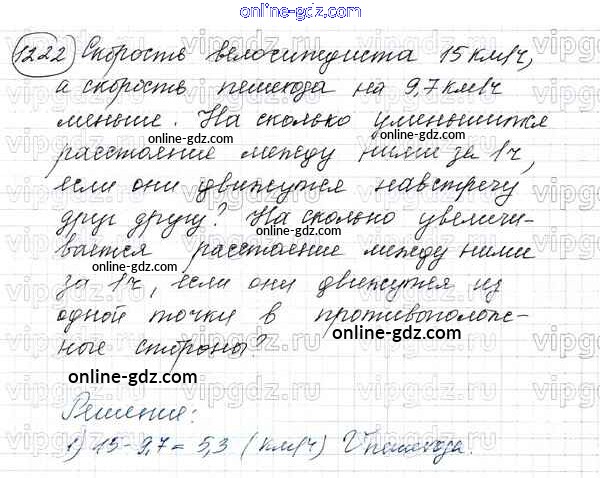 online-gdz.com
1222 Скорость велосипедиста 15 км/ч,
а скорость пешехода на 9,7 км/ч
меньше. На сколько уменьшится
online-gdz.com
расстояние между ними за 1ч,
online-gdz.com
если они движутся навстречу
друг другу? На сколько увеличи-
online-gdz.com
вается расстояние между ними
online-gdz.com
за 1ч, если они движутся из
одной точки в противополож-
online-gdz.com
ные стороны?
online-gdz.com
Решение:
1) 15 - 9,7 = 5,3 (км/ч) V пешехода.